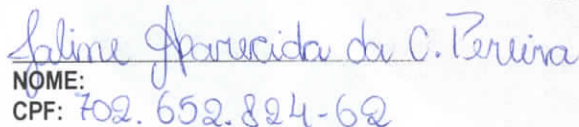 Jaline Aparecida da C. Pereira
NOME:
CPF: 702.652.824-62